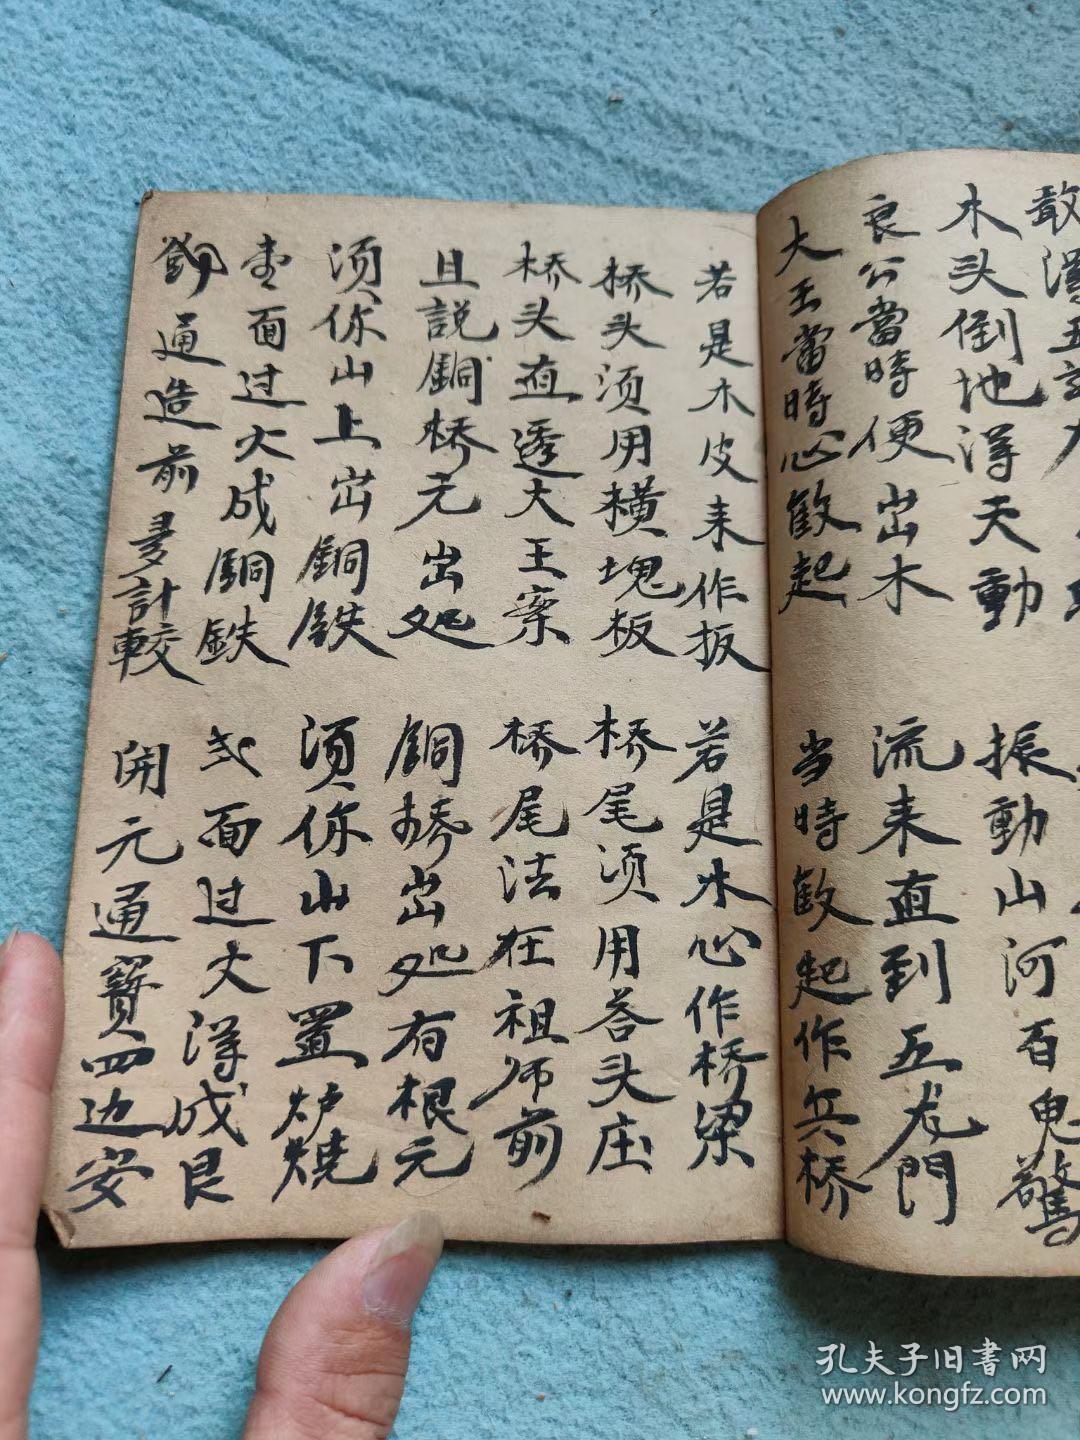 木头倒地淂天動 振動山河百鬼驚
良公當時便出木 流来直到五龙門
大王當時心歡起 当時歡起作兵桥
若是木皮来作板 若是木心作桥梁
桥头须用横塊板 桥尾须用答头庄
桥头直透大王案 桥尾法在祖师前
且説銅桥元出处 銅桥出处有根元
须你山上出銅鉄 须你山下置炉燒
面过火成銅鉄 弍面过火淂成艮
通造前多計較 開元通寳四边安
孔夫子旧書网
www.kongfz.com